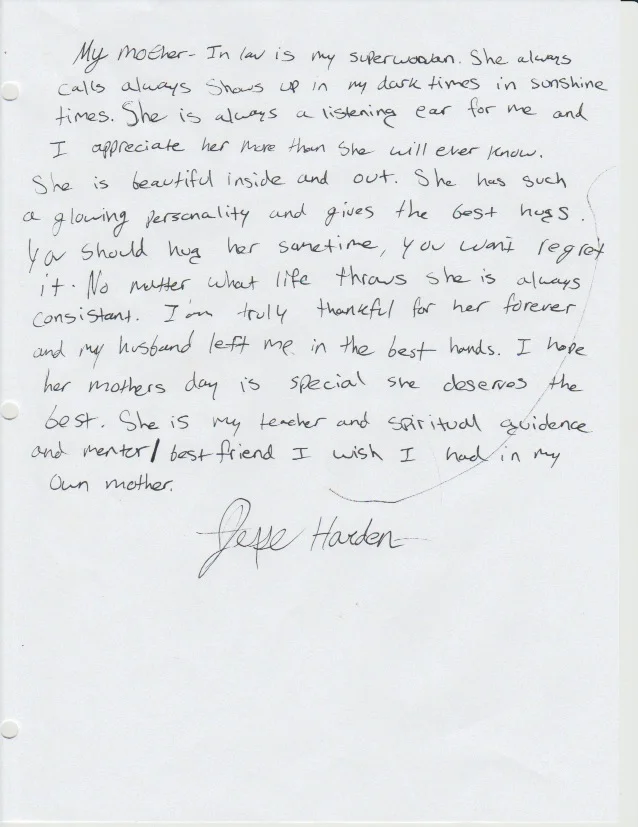 My mother-In law is my superwoman. She always
calls always shows up in my dark times in sunshine
times. She is always a listening ear for me and
I appreciate her more than she will ever know.
She is beautiful inside and out. She has such
a glowing personality and gives the best hugs.
You should hug her sometime, you won't regret
it. No matter what life throws she is always
consistant. I am truly thankful for her forever
and my husband left me in the best hands. I hope
her mothers day is special she deserves the
best. She is my teacher and spiritual guidence
and mentor/best friend I wish I had in my
own mother.
Jesse Harden